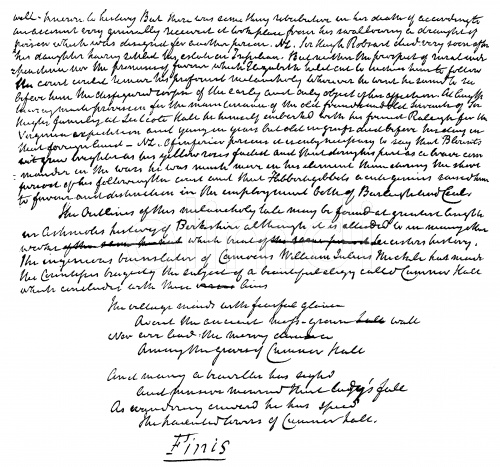 well-known to history But there was something retributive in his death if according to
an account very generally received it took place from his swallowing a draught of
poison which was designed for another person. NL. Sir Hugh Robsart died very soon after
his daughter having settled his estate on Tressilian. But neither the prospect of rural inde-
pendence nor the promises of favour which Elizabeth held out to induce him to follow
the court could remove his profound melancholy Wherever he went he seemed to see
before him the disfigured corpse of the early and only object of his affection At length
having made provision for the maintenance of the old friends and old servants of Sir
Hughs family at Lidcote Hall he himself embarked with his friend Raleigh for the
Virginia expedition and young in years but old in griefs died before his day in
that foreign land – NL. Of inferior persons it is only necessary to say that Blounts
wit grew brighter as his yellow roses faded and that doing his part as a brave com
mander in the wars he was much more in his element than during the short
period of his following the court and that Flibbertigibbets acute genius raised him
to favour and distinction in the employment both of Burleigh and Cecil
The Outlines of this melancholy tale may be found at greater length
in Ashmoles history of Berkshire although it is alluded to in many other
works of the same which treat of Leicesters history.
The ingenious translator of Camoens William Julius Mickle has made
the Countesses tragedy the subject of a beautiful elegy called Cumnor Hall
which concludes with these lines
The village maids with fearful glance
Avoid the ancient moss-grown hall wall
Nor ever lead the merry dance
Among the groves of Cumnor Hall
And many a traveller has sighd
And pensive mournd that ladys fall
As wandering onward he has spied
The haunted towers of Cumnor hall.
Finis